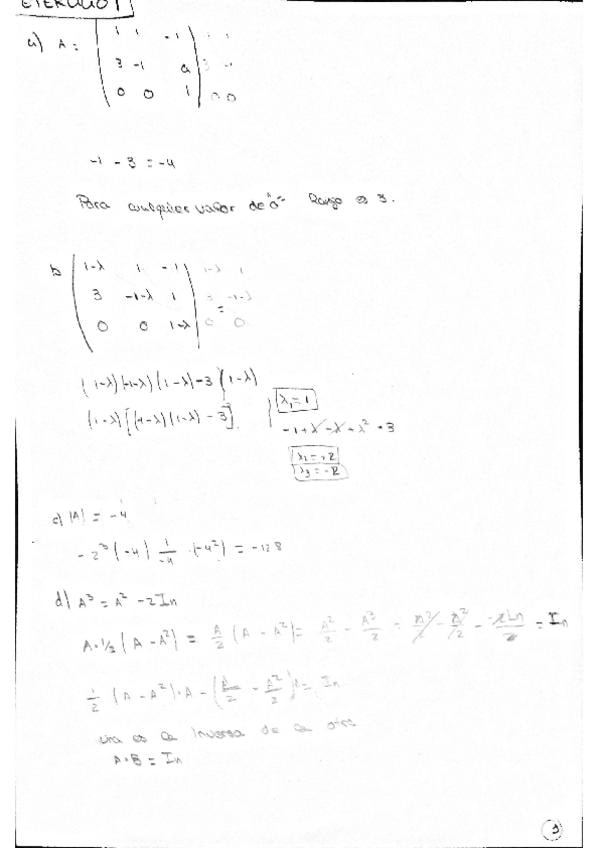 EJERCICIO 1
a) A = | 1 1 -1 | 1 1
| 3 -1 a | 3 -1
| 0 0 1 | 0 0
-1 - 3 = -4
Para cualquier valor de "a" Rango es 3.
b | 1-λ 1 -1 | 1-λ 1
| 3 -1-λ 1 | 3 -1-λ =
| 0 0 1-λ | 0 0
(1-λ)(-1-λ)(1-λ)-3(1-λ)
(1-λ)[(-1-λ)(1-λ) - 3] λ₁=1
-1+λ-λ+λ² - 3
λ₂=+2
λ₃=-2
c) |A| = -4
-2³(-4) 1/-4 (-4²) = -128
d) A³ = A² - 2In
A·1/2 (A - A²) = A/2 (A - A²) = A²/2 - A³/2 = A²/2 - A²/2 - -2In/2 = In
1/2 (A - A²)·A = (A/2 - A²/2) = In
una es la inversa de la otra
A·B = In
1